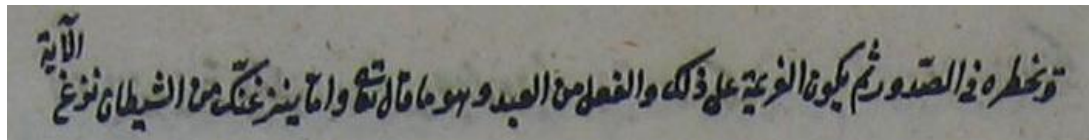 وتخطره فى الصّدور ثم يكون العزيمة على ذلك والفعل من العبد وهو ما قال تع واما ينزغنّك من الشيطان نزغ
الآية